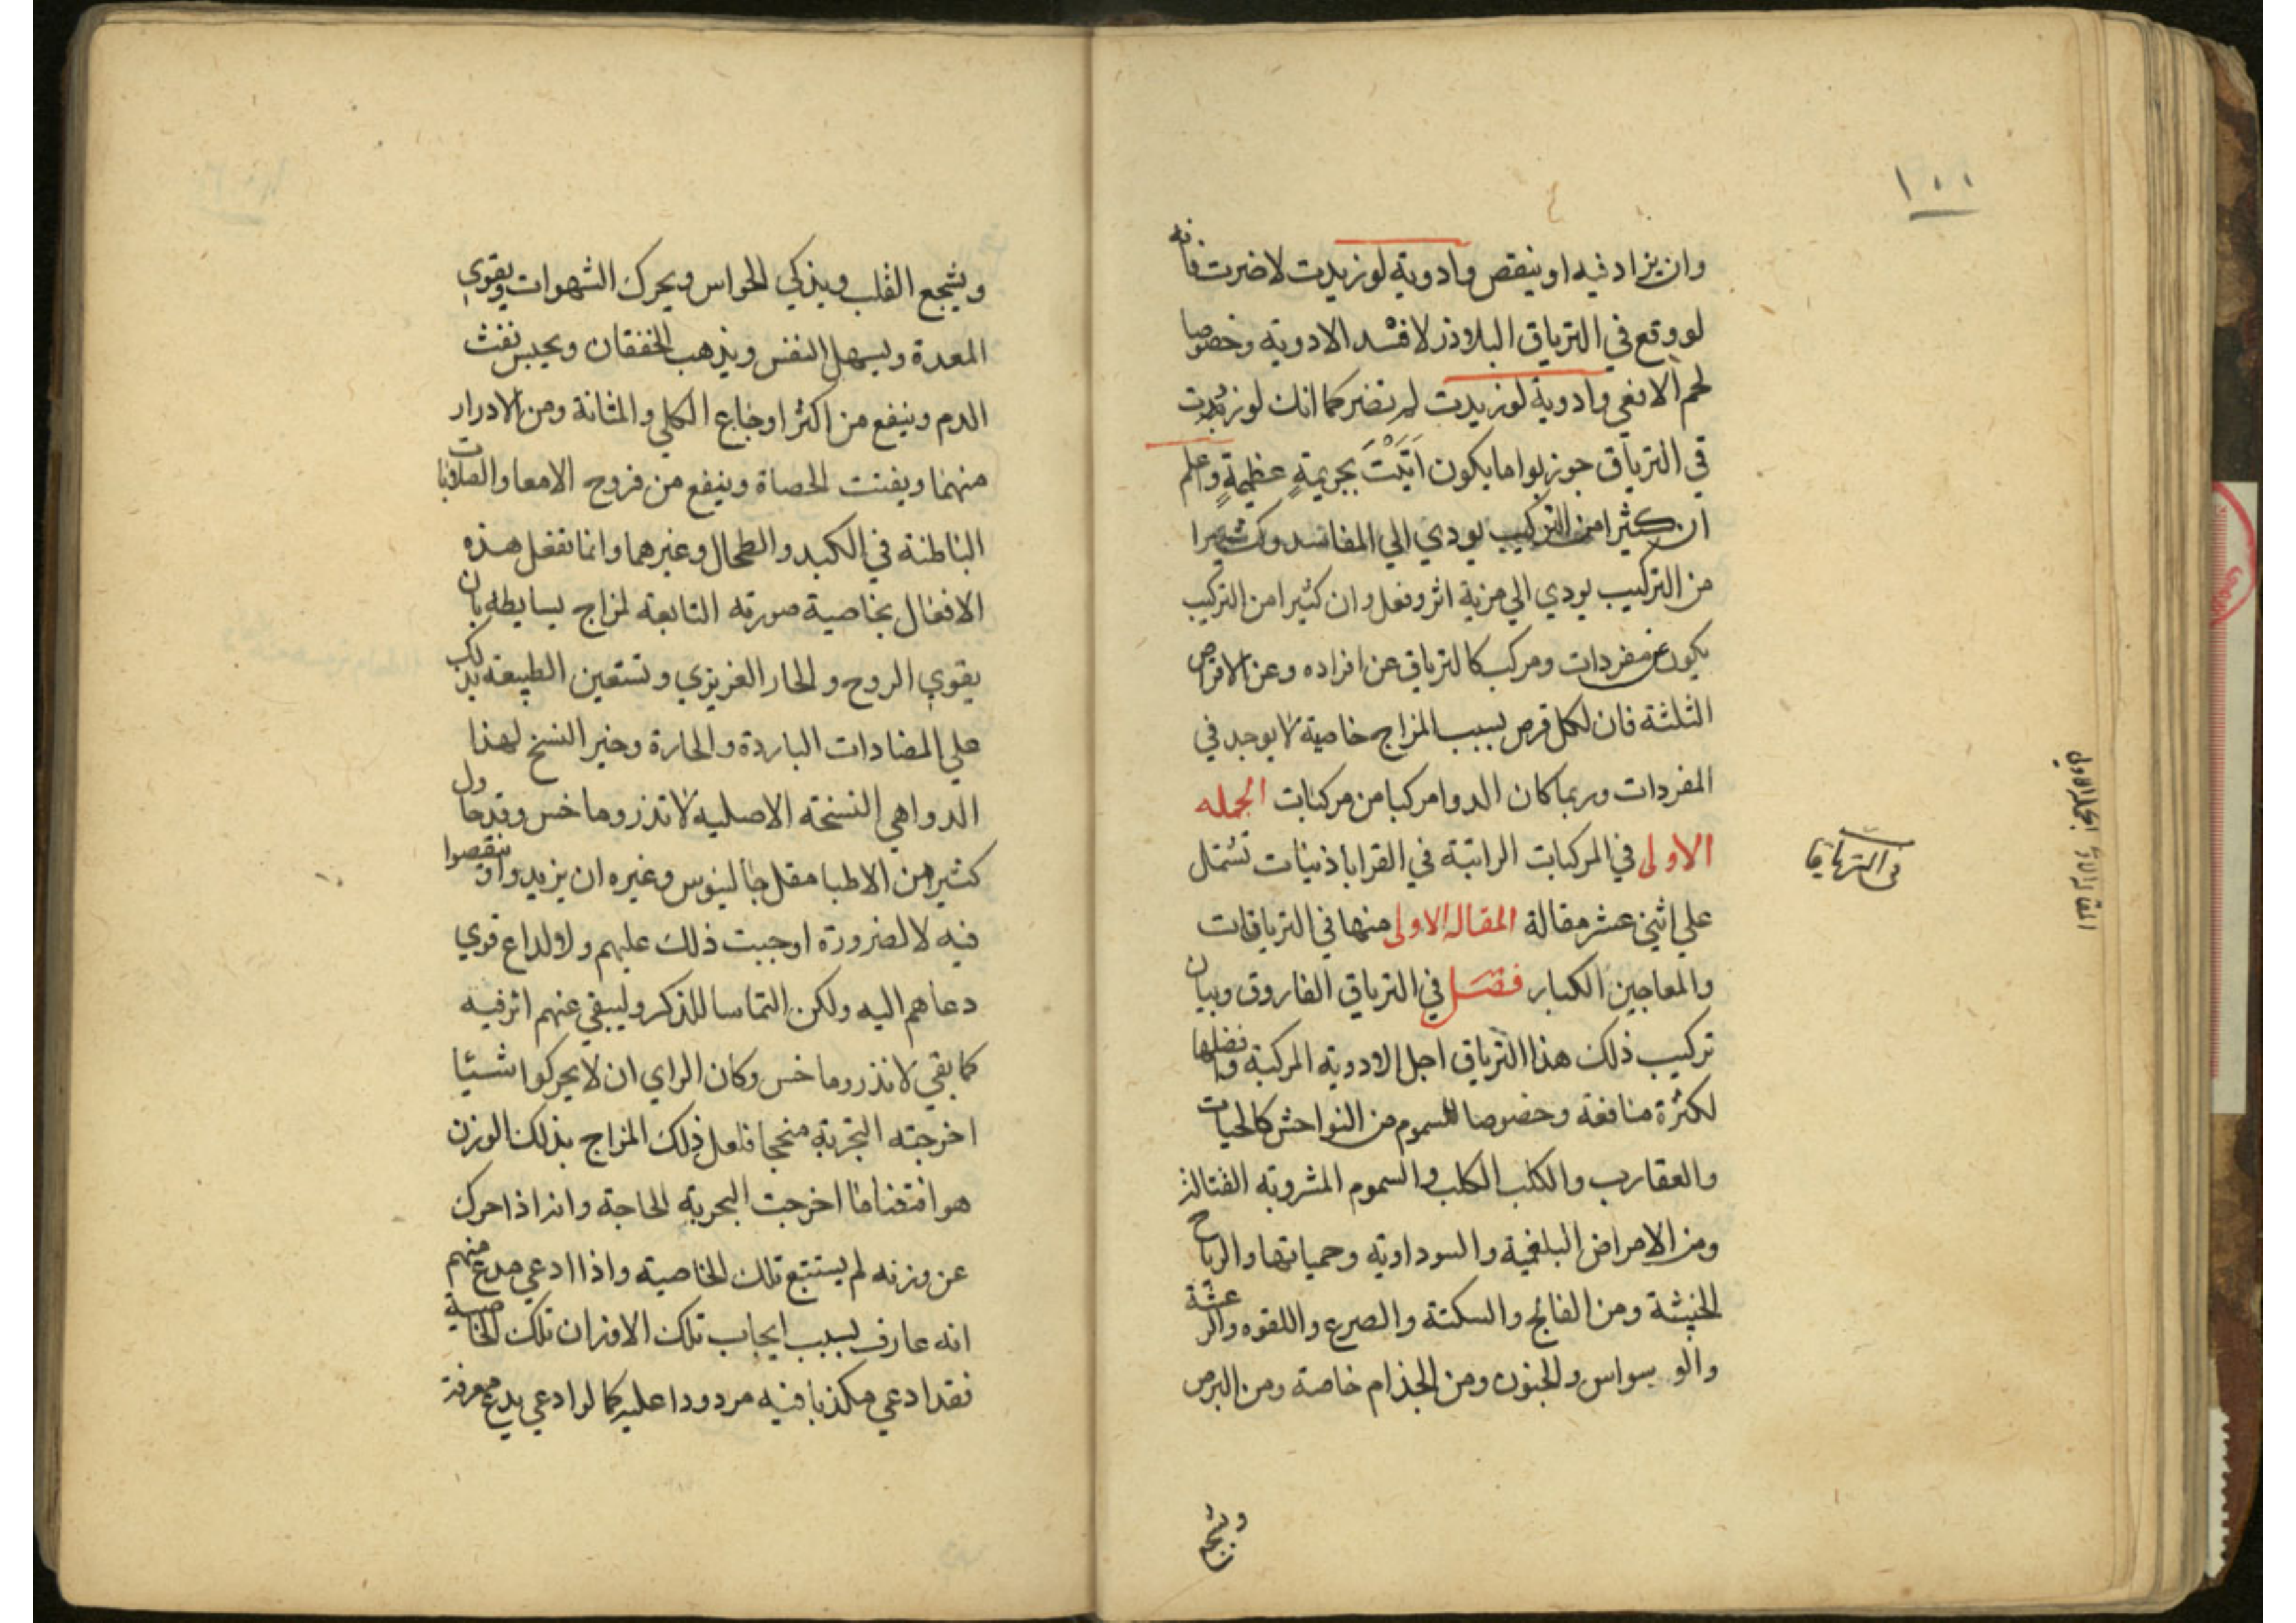 ١٠٠
وان يزاد فيه او ينقص وادوية لو زيدت لاضرت فانه
لو وقع في الترياق البلاذر لافسد الادوية وخصوصا
لحم الافعي وادوية لو زيدت لم تضر كما انك لو زيدت
في الترياق جوزبوا ما يكون اتيت بجريمة عظيمة واعلم
ان كثيرا من التركيب يودي الي المفاسد وكثيرا
من التركيب يودي الي مزية اثر وفعل وان كثيرا من التركيب
يكون عن مفردات ومركب كالترياق عن افراده وعن الاقراص
الثلثة فان لكل قرص بسبب المزاج خاصية لا يوجد في
المفردات وربما كان الدوا مركبا من مركبات الجمله
الاولى في المركبات الراتبة في القراباذنيات تشتمل
علي اثني عشر مقالة المقاله الاولى منها في الترياقات
والمعاجين الكبار فصل في الترياق الفاروق وبيان
تركيب ذلك هذا الترياق اجل الادوية المركبة وافضلها
لكثرة منافعه وخصوصا للسموم من النواحش كالحيات
والعقارب والكلب الكلب والسموم المشروبة القتالة
ومن الامراض البلغمية والسوداوية وحمياتها والرياح
الخبيثة ومن الفالج والسكتة والصرع واللقوه والرعشة
والوسواس والجنون ومن الجذام خاصة ومن البرص
ويشجع
في الترياقات
ويشجع القلب ويذكي الحواس ويحرك الشهوات ويقوي
المعدة ويسهل النفس ويذهب الخفقان ويحبس نفث
الدم وينفع من اكثر اوجاع الكلي والمثانة ومن الادرار
منهما ويفتت الحصاة وينفع من قروح الامعا والصلابات
الباطنة في الكبد والطحال وغيرهما وانما تفعل هذه
الافعال بخاصية صورته التابعة لمزاج بسايطه بان
يقوي الروح والحار الغريزي وتستعين الطبيعة بذلك
علي المضادات الباردة والحارة وخير النسخ لهذا
الدوا هي النسخته الاصليه لاندروماخس وقد حاول
كثير من الاطبا مثل جالينوس وغيره ان يزيدوا وينقصوا
فيه لا لضرورة اوجبت ذلك عليهم ولا لداع قوي
دعاهم اليه ولكن التماسا للذكر وليبقي عنهم اثر فيه
كما بقي لاندروماخس وكان الراي ان لا يحركوا شيئا
اخرجته التجربة منجحا فلعل ذلك المزاج بذلك الوزن
هو اخرجت التجربة الحاجة وانه اذا حرك
عن وزنه لم يستتبع تلك الخاصية واذا ادعي مدع منهم
انه عارف بسبب ايجاب تلك الاوزان تلك الخاصية
فقد ادعي مكذبا فيه مردودا عليه كما لو ادعي مدع معرفة